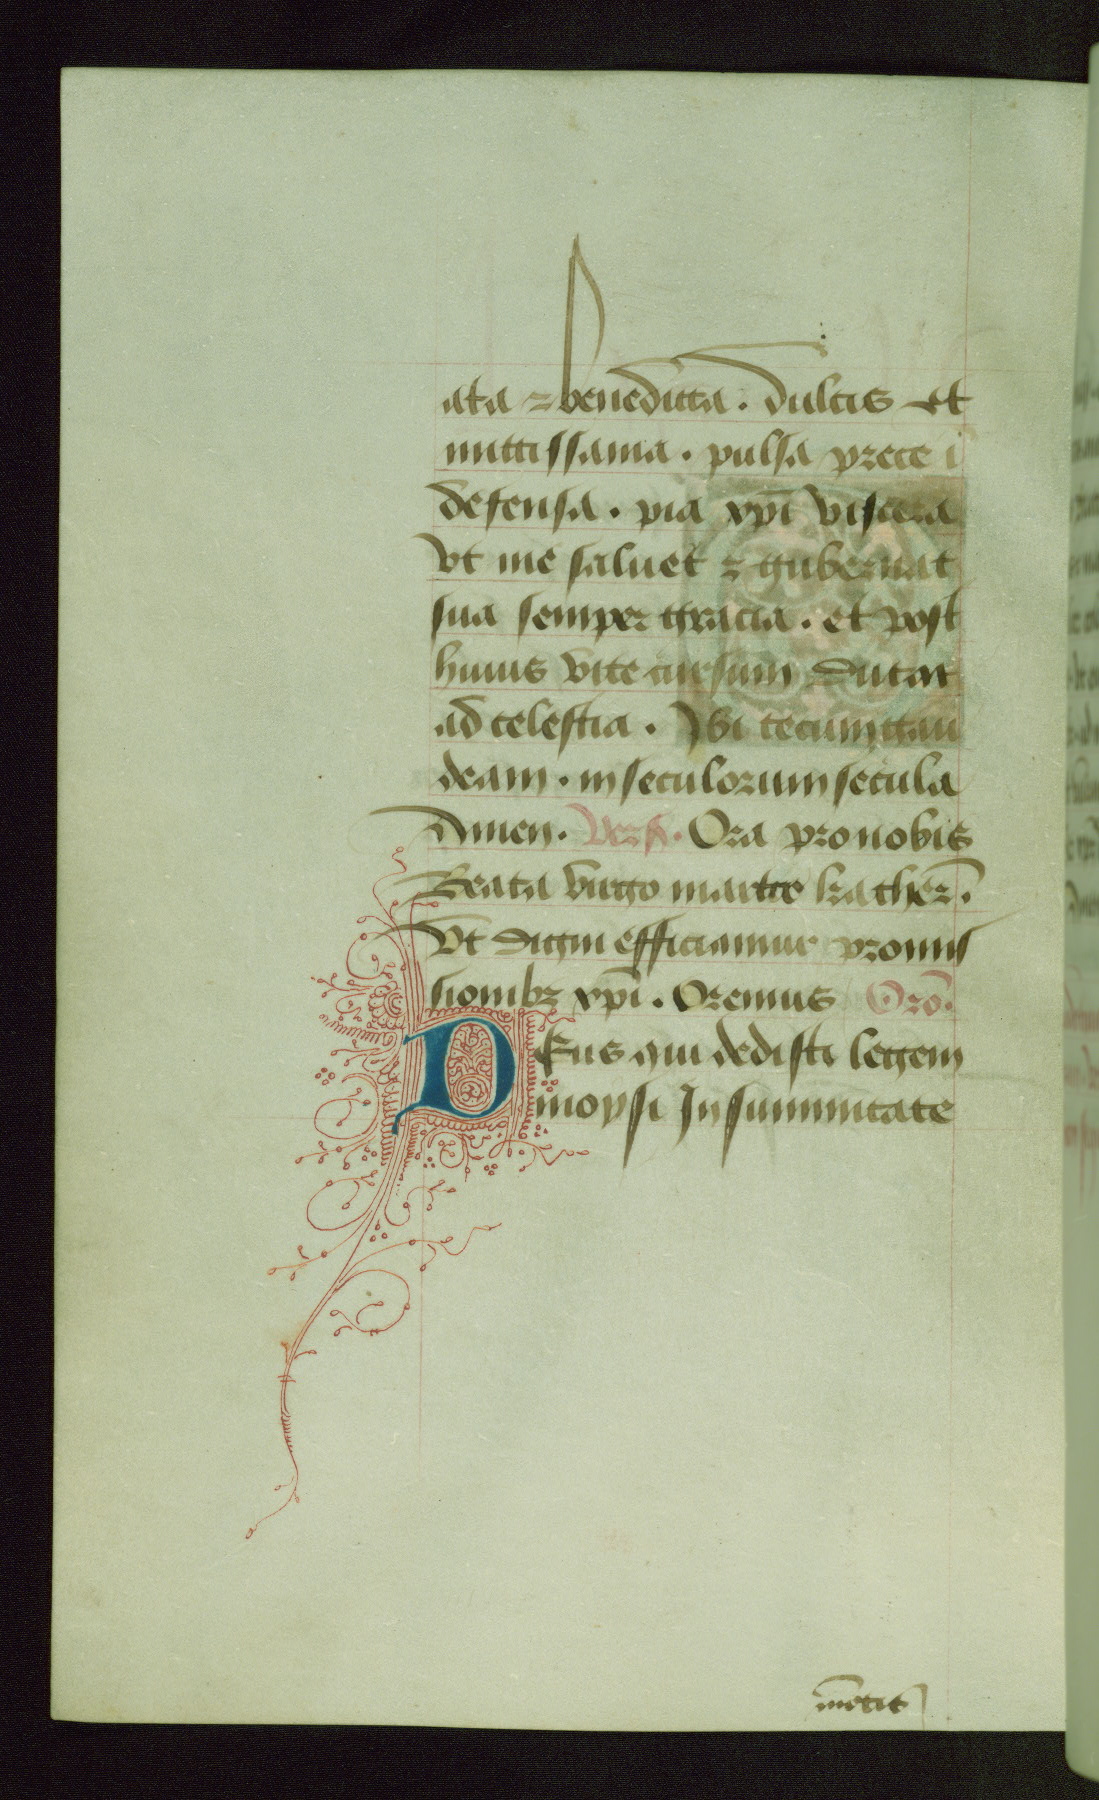 ata ⁊ benedicta. dulcis et
mitissama. pulsa prece i
defensa. pia xp̄i viscera
vt me saluet ⁊ gubernat
sua semper gracia. et post
huius vite cursum ducat
ad celestia. Vbi tecum gau
deam. in seculorum secula
Amen. Vers. Ora pro nobis
Beata virgo martir kather̄.
Vt digni efficiamur promis
sionibꝫ xp̄i. Oremus Orō.
DEus qui dedisti legem
moysi In summitate
mōtis